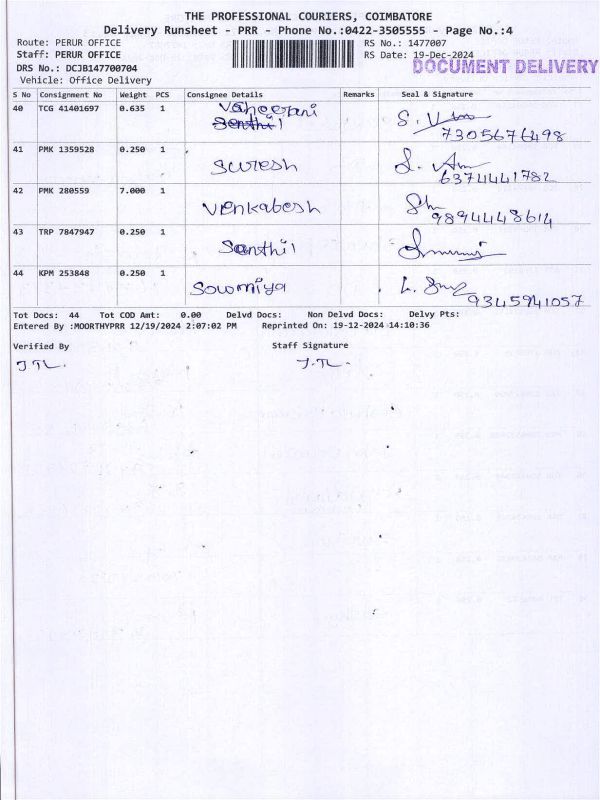 THE PROFESSIONAL COURIERS, COIMBATORE
Delivery Runsheet - PRR - Phone No.:0422-3505555 - Page No.:4
Route: PERUR OFFICE RS No.: 1477007
Staff: PERUR OFFICE RS Date: 19-Dec-2024
DOCUMENT DELIVERY
DRS No.: DCJB147700704
Vehicle: Office Delivery
S No Consignment No Weight PCS Consignee Details Remarks Seal & Signature
40 TCG 41401697 0.635 1 Senthil
7305676498
41 PMK 1359528 0.250 1 Suresh
6374441782
42 PMK 280559 7.000 1 Venkabesh
98944448614
43 TRP 7847947 0.250 1 Senthil
44 KPM 253848 0.250 1 Sowmiya
9345941057
Tot Docs: 44 Tot COD Amt: 0.00 Delvd Docs: Non Delvd Docs: Delvy Pts:
Entered By :MOORTHYPRR 12/19/2024 2:07:02 PM Reprinted On: 19-12-2024 14:10:36
Verified By Staff Signature